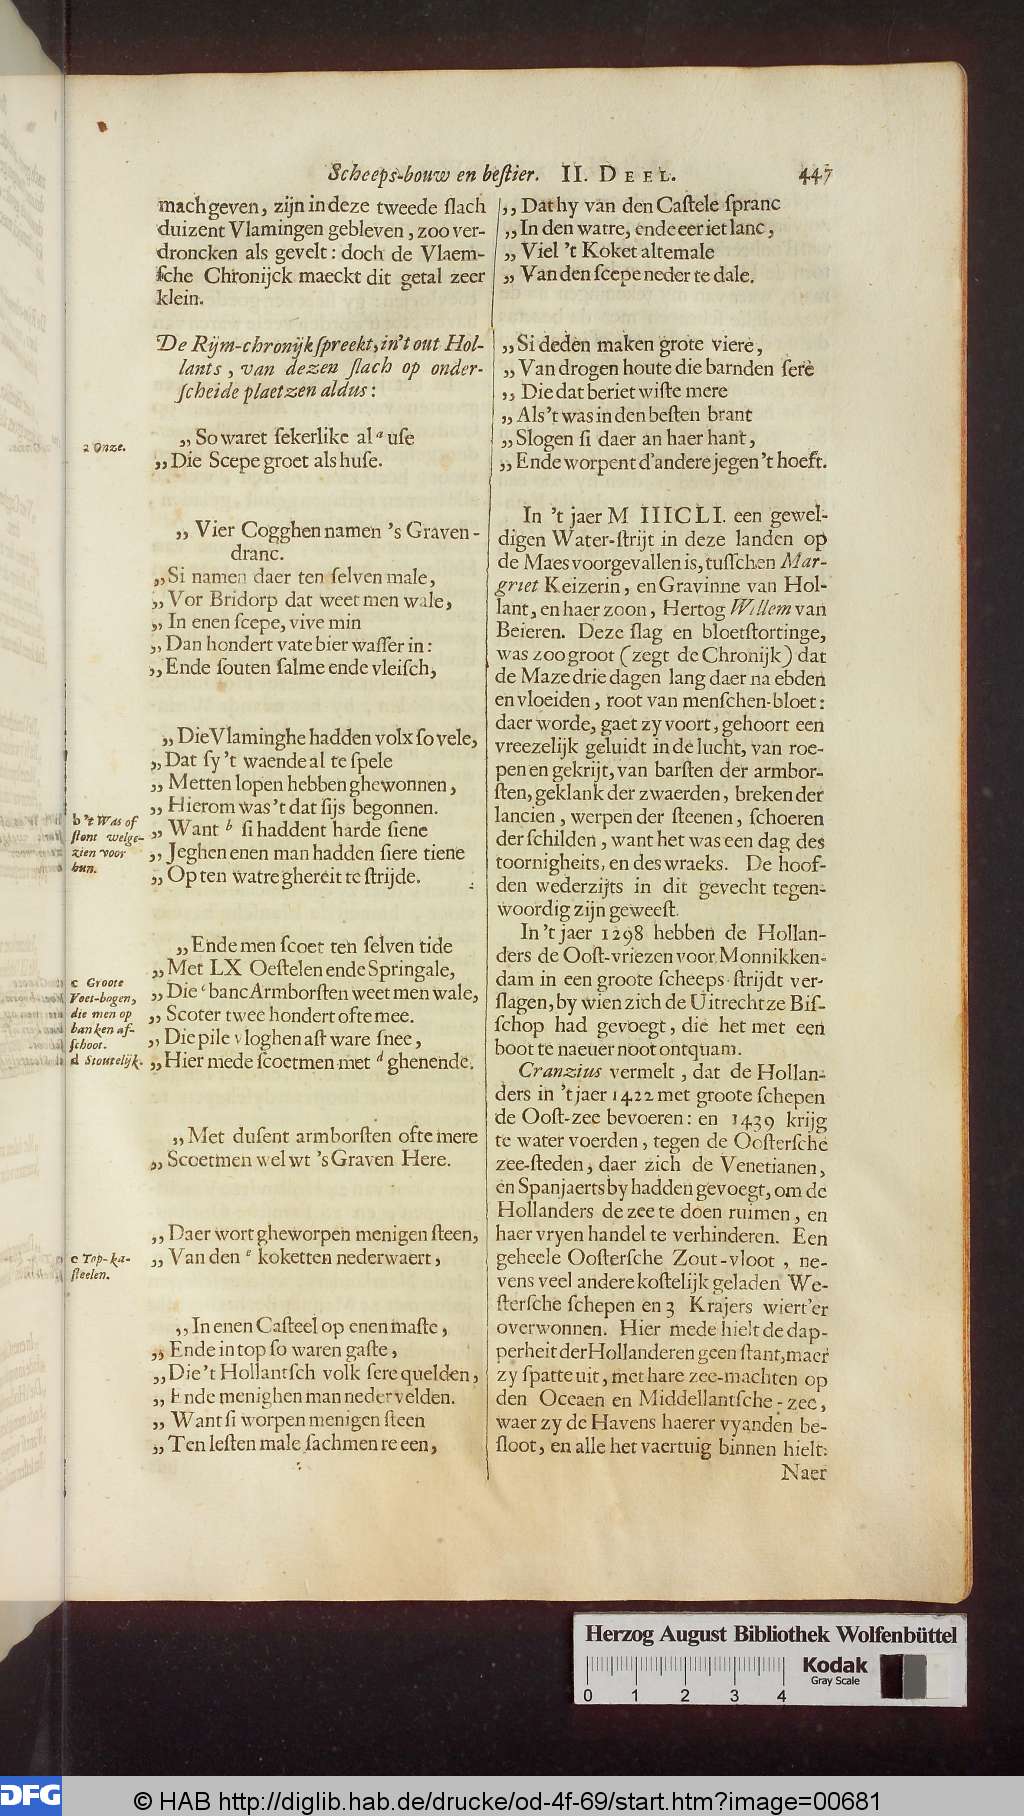 Scheeps-bouw en beſtier. II. DEEL. 447
mach geven, zijn in deze tweede ſlach
duizent Vlamingen gebleven, zoo ver-
droncken als gevelt: doch de Vlaem-
ſche Chronijck maeckt dit getal zeer
klein.
De Rijm-chronijk ſpreekt, in't out Hol-
lants, van dezen ſlach op onder-
ſcheide plaetzen aldus:
a Onze.
„ So waret ſekerlike al a uſe
„ Die Scepe groet als huſe.
„ Vier Cogghen namen 's Graven-
dranc.
„ Si namen daer ten ſelven male,
„ Vor Bridorp dat weet men wale,
„ In enen ſcepe, vive min
„ Dan hondert vate bier waſſer in:
„ Ende ſouten ſalme ende vleiſch,
„ Die Vlaminghe hadden volx ſo vele,
„ Dat ſy 't waende al te ſpele
„ Metten lopen hebben ghewonnen,
„ Hierom was 't dat ſijs begonnen.
b 't Was of
ſtont welge-
zien voor
hun.
„ Want b ſi haddent harde ſiene
„ Jeghen enen man hadden ſiere tiene
„ Op ten watre ghereit te ſtrijde.
„ Ende men ſcoet ten ſelven tide
„ Met LX Oeſtelen ende Springale,
c Groote
Voet-bogen,
die men op
banken af-
ſchoot.
d Stoutelijk.
„ Die c banc Armborſten weet men wale,
„ Scoter twee hondert ofte mee.
„ Die pile vloghen aſt ware ſnee,
„ Hier mede ſcoetmen met d ghenende.
„ Met duſent armborſten ofte mere
„ Scoetmen wel wt 's Graven Here.
„ Daer wort gheworpen menigen ſteen,
e Top-ka-
ſteelen.
„ Van den e koketten nederwaert,
„ In enen Caſteel op enen maſte,
„ Ende in top ſo waren gaſte,
„ Die 't Hollantſch volk ſere quelden,
„ Ende menighen man neder velden.
„ Want ſi worpen menigen ſteen
„ Ten leſten male ſachmen re een,
„ Dat hy van den Caſtele ſpranc
„ In den watre, ende eer iet lanc,
„ Viel 't Koket altemale
„ Van den ſcepe neder te dale.
„ Si deden maken grote viere,
„ Van drogen houte die barnden ſere
„ Die dat beriet wiſte mere
„ Als 't was in den beſten brant
„ Slogen ſi daer an haer hant,
„ Ende worpent d'andere jegen 't hoeft.
In 't jaer M IIICLI. een gewel-
digen Water-ſtrijt in deze landen op
de Maes voorgevallen is, tuſſchen Mar-
griet Keizerin, en Gravinne van Hol-
lant, en haer zoon, Hertog Willem van
Beieren. Deze ſlag en bloetſtortinge,
was zoo groot (zegt de Chronijk) dat
de Maze drie dagen lang daer na ebden
en vloeiden, root van menſchen-bloet:
daer worde, gaet zy voort, gehoort een
vreezelijk geluidt in de lucht, van roe-
pen en gekrijt, van barſten der armbor-
ſten, geklank der zwaerden, breken der
lancien, werpen der ſteenen, ſchoeren
der ſchilden, want het was een dag des
toornigheits, en des wraeks. De hoof-
den wederzijts in dit gevecht tegen-
woordig zijn geweeſt.
In 't jaer 1298 hebben de Hollan-
ders de Ooſt-vriezen voor Monnikken-
dam in een groote ſcheeps ſtrijdt ver-
ſlagen, by wien zich de Uitrechtze Biſ-
ſchop had gevoegt, die het met een
boot te naeuer noot ontquam.
Cranzius vermelt, dat de Hollan-
ders in 't jaer 1422 met groote ſchepen
de Ooſt-zee bevoeren: en 1439 krijg
te water voerden, tegen de Ooſterſche
zee-ſteden, daer zich de Venetianen,
en Spanjaerts by hadden gevoegt, om de
Hollanders de zee te doen ruimen, en
haer vryen handel te verhinderen. Een
geheele Ooſterſche Zout-vloot, ne-
vens veel andere koſtelijk geladen We-
ſterſche ſchepen en 3 Krajers wiert'er
overwonnen. Hier mede hielt de dap-
perheit der Hollanderen geen ſtant, maer
zy ſpatte uit, met hare zee-machten op
den Oceaen en Middellantſche-zee,
waer zy de Havens haerer vyanden be-
ſloot, en alle het vaertuig binnen hielt:
Naer
Herzog August Bibliothek Wolfenbüttel
Kodak
Gray Scale
0 1 2 3 4
DFG
© HAB http://diglib.hab.de/drucke/od-4f-69/start.htm?image=00681